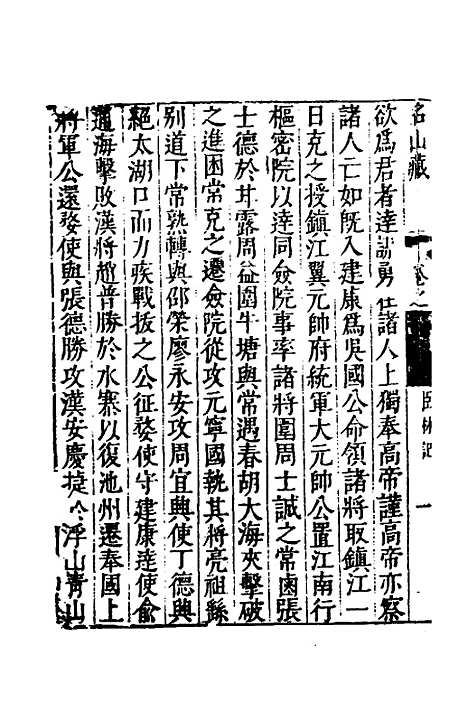 名山藏 卷之 臣林記 一
欲爲君者達謝勇仕諸人上獨奉高帝謹高帝亦察
諸人亡如旣入建康爲吳國公命領諸將取鎮江一
日克之授鎮江翼元帥府統軍大元帥公置江南行
樞密院以達同僉院事率諸將圍周士誠之常鹵張
士德於甘露周益圍牛塘與常遇春胡大海夾擊破
之進困常克之遷僉院從攻元寧國執其將亮祖縣
別道下常熟轉與邵榮廖永安攻周宜興使丁德興
絕太湖口而力疾戰拔之公征婺使守建康達使俞
通海擊敗漢將趙普勝於水寨以復池州遷奉國上
將軍公還婺使與張德勝攻漢安慶捷 浮山青山